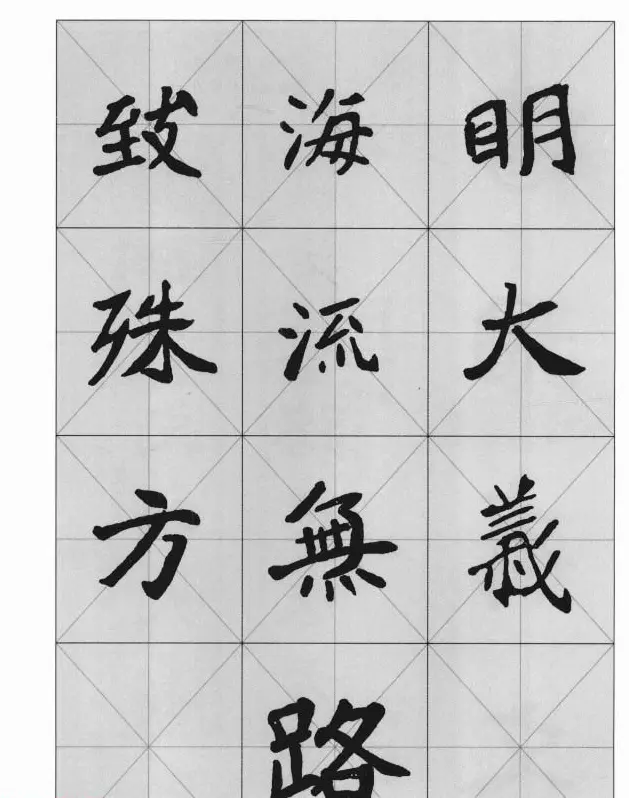 明大義
海流無路
致殊方